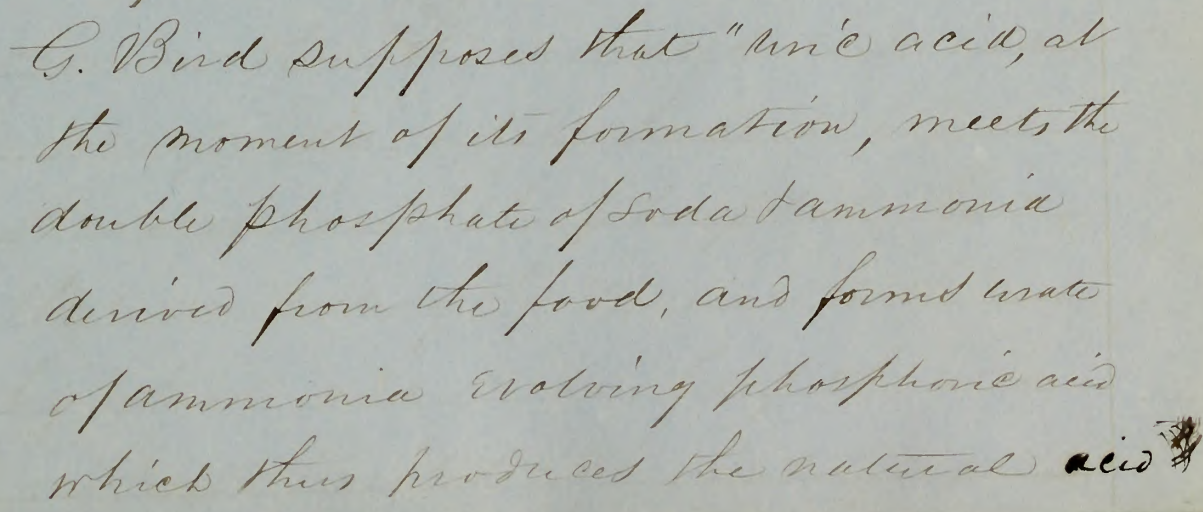 G. Bird supposes that "uric acid, at
the moment of its formation, meets the
double phosphate of soda & ammonia
derived from the food, and forms urate
of ammonia evolving phosphoric acid
which thus produces the natural acid